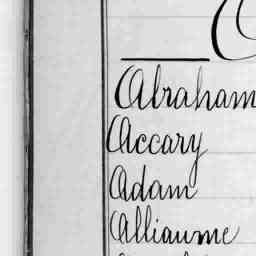 Abraham
Accary
Adam
Alliaume